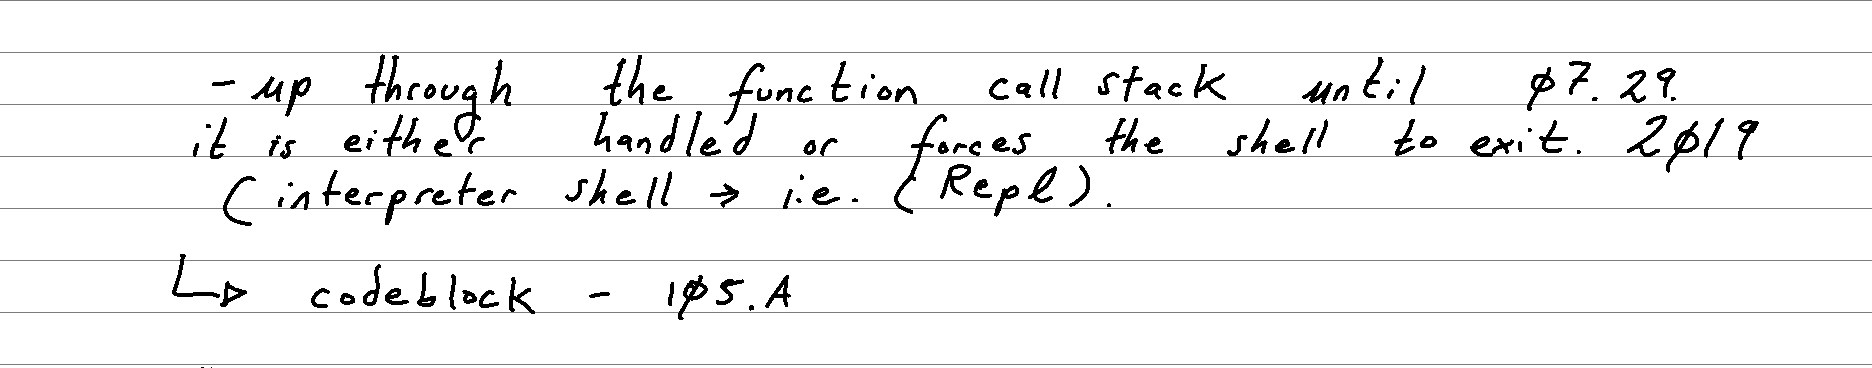 - up through the function call stack until ø7.29.
it is either handled or forces the shell to exit. 2ø19
(interpreter shell → i.e. (Repl).
↳ codeblock - 1ø5.A